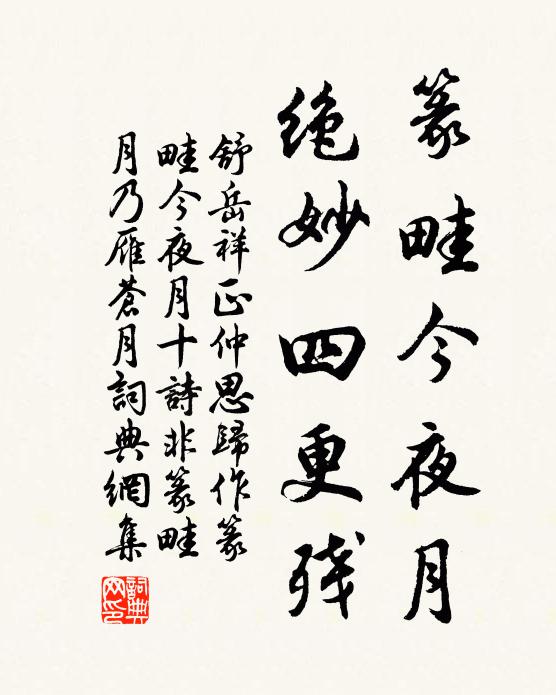 篆畦今夜月
绝妙四更残
舒岳祥正仲思歸作篆
畦今夜月十詩非篆畦
月乃雁蒼月詞典網集
詞典網印